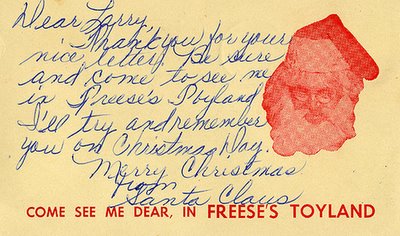 Dear Larry,
Thank you for your
nice letter. Be sure
and come to see me
in Freese's Toyland
I'll try and remember
you on Christmas Day.
Merry Christmas
from
Santa Claus
COME SEE ME DEAR, IN FREESE'S TOYLAND